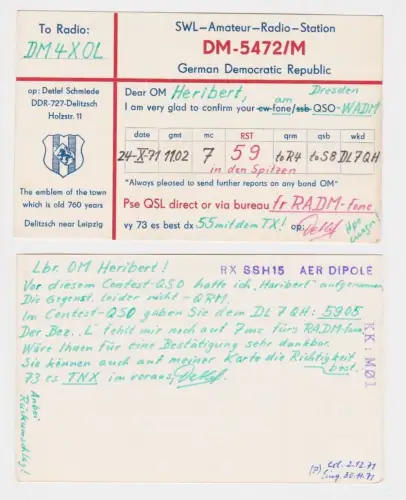 To Radio:
DM4XOL
op: Detlef Schmiede
DDR-727-Delitzsch
Holzstr. 11
The emblem of the town
which is old 760 years
Delitzsch near Leipzig
SWL-Amateur-Radio-Station
DM-5472/M
German Democratic Republic
Dear OM Heribert, Dresden
am
I am very glad to confirm your cw-fone/ssb QSO-WADM
date gmt mc RST qrm qsb wkd
24-X-71 11.02 7 59 to R4 to S8 DL7QH
in den Spitzen
"Always pleased to send further reports on any band OM"
Pse QSL direct or via bureau fr RADM-fone
vy 73 es best dx 55 mit dem TX! op: Detlef
Lbr. OM Heribert!
RX SSH15 AER DIPOLE
Vor diesem Contest-QSO hatte ich "Haribert" aufgenommen.
Die Gegenst. leider nicht - QRM.
Im Contest-QSO gaben Sie dem DL7QH: 5905
Der Bez. "L" fehlt mir noch auf 7mc fürs RADM-fone,
Wäre Ihnen für eine Bestätigung sehr dankbar.
Sie können auch auf meiner Karte die Richtigkeit
best.
73 es TNX im voraus, Detlef
KK: M01
Anbei
Rückumschlag!
(P) Erl. 2.12.71
Eing. 30.11.71